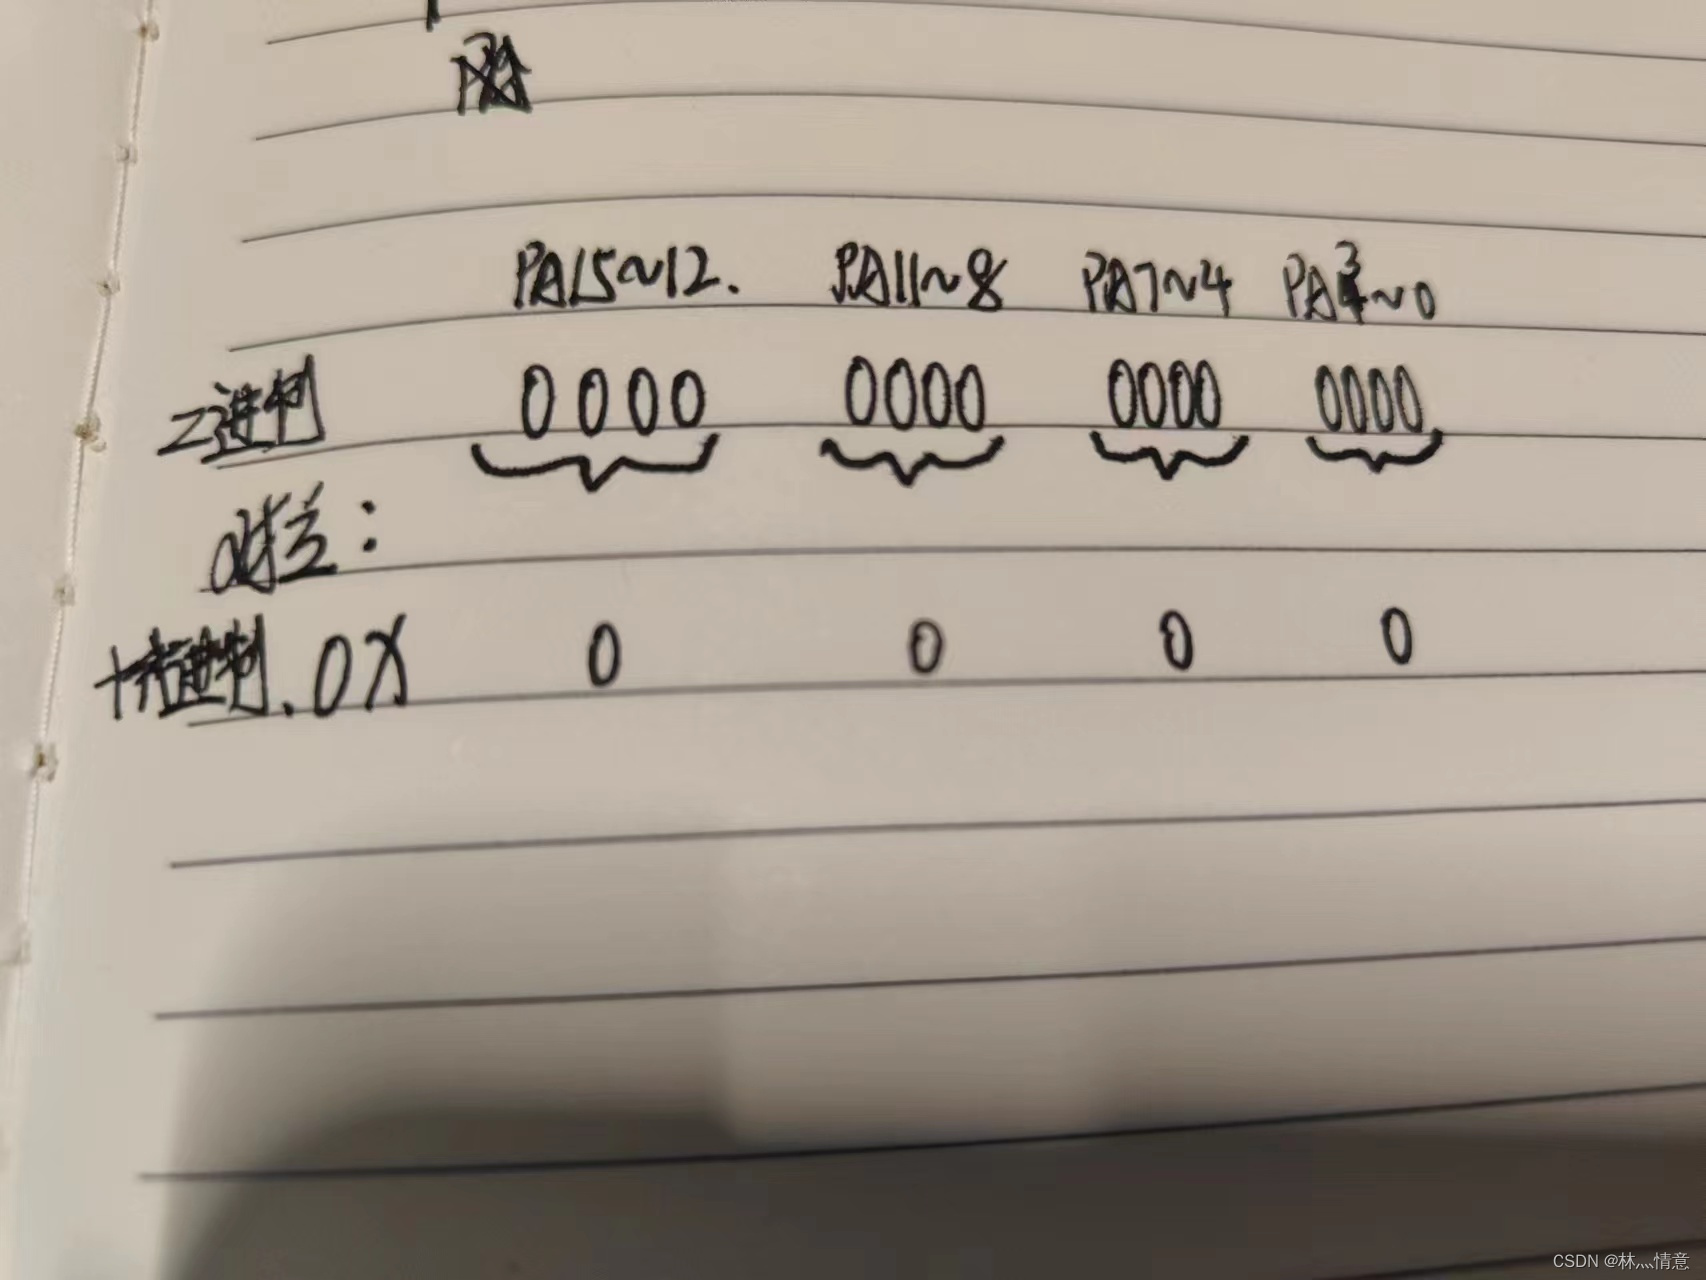 PA15~12. PA11~8 PA7~4 PA3~0
二进制 0000 0000 0000 0000
对应:
十六进制. 0X 0 0 0 0
CSDN @林灬情意